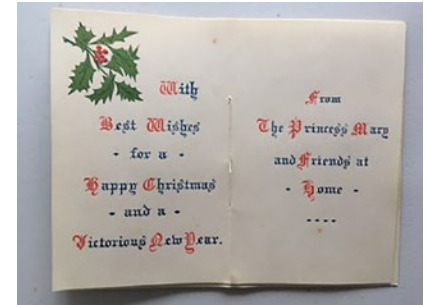 With
Best Wishes
- for a -
Happy Christmas
- and a -
Victorious New Year.
From
The Princess Mary
and Friends at
- Home -
----